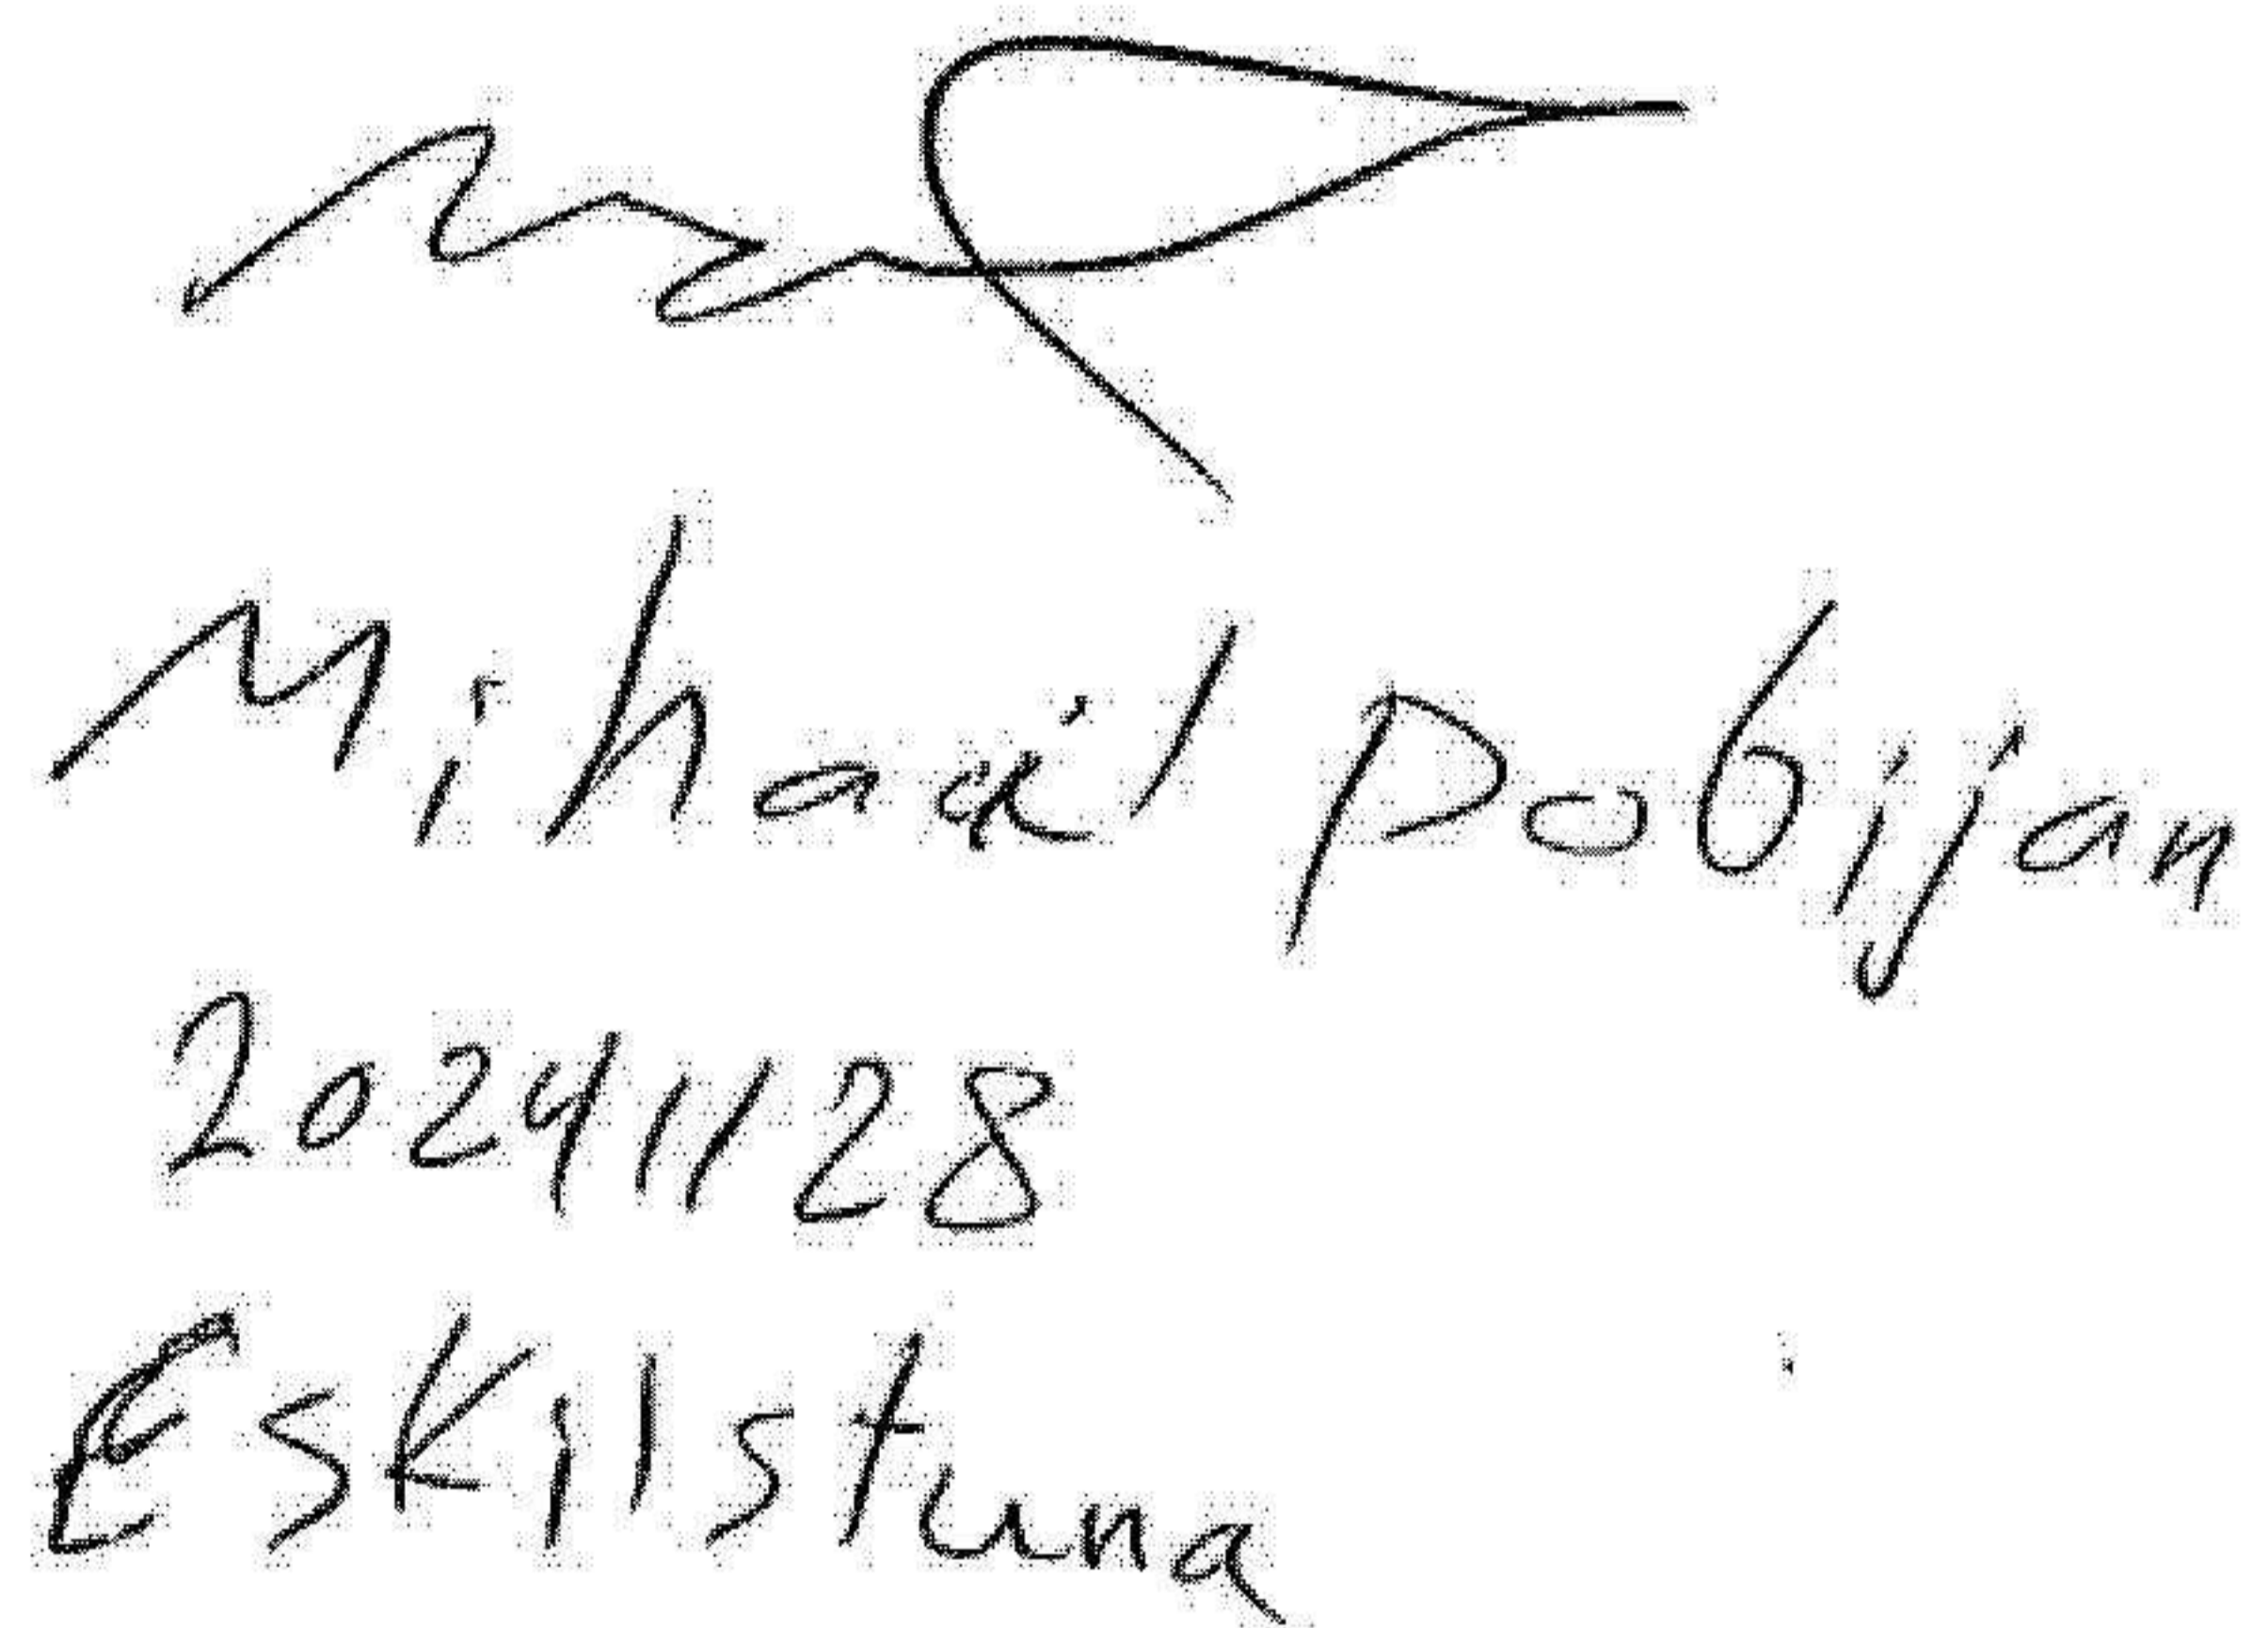 Mihail Pobijan
20241128
Eskilstuna